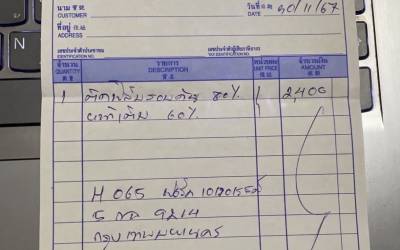 นาม
CUSTOMER
วันที่
DATE 20/11/67
ที่อยู่
ADDRESS
เลขประจำตัวประชาชน
IDENTIFICATION NO.
เลขประจำตัวผู้เสียภาษีอากร
TAX IDENTIFICATION NO.
จำนวน
QUANTITY
รายการ
DESCRIPTION
หน่วยละ
UNIT PRICE
จำนวนเงิน
AMOUNT
1 ติดฟิล์มรอบคัน 80% 2,400
60%
H 065
5 กฉ 9214
กรุงเทพมหานคร